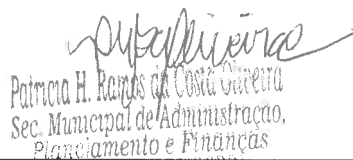 Patricia H. Ramos da Costa Oliveira
Sec. Municipal de Administração,
Planejamento e Finanças